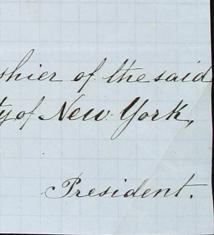 shier of the said
ty of New York,
President.